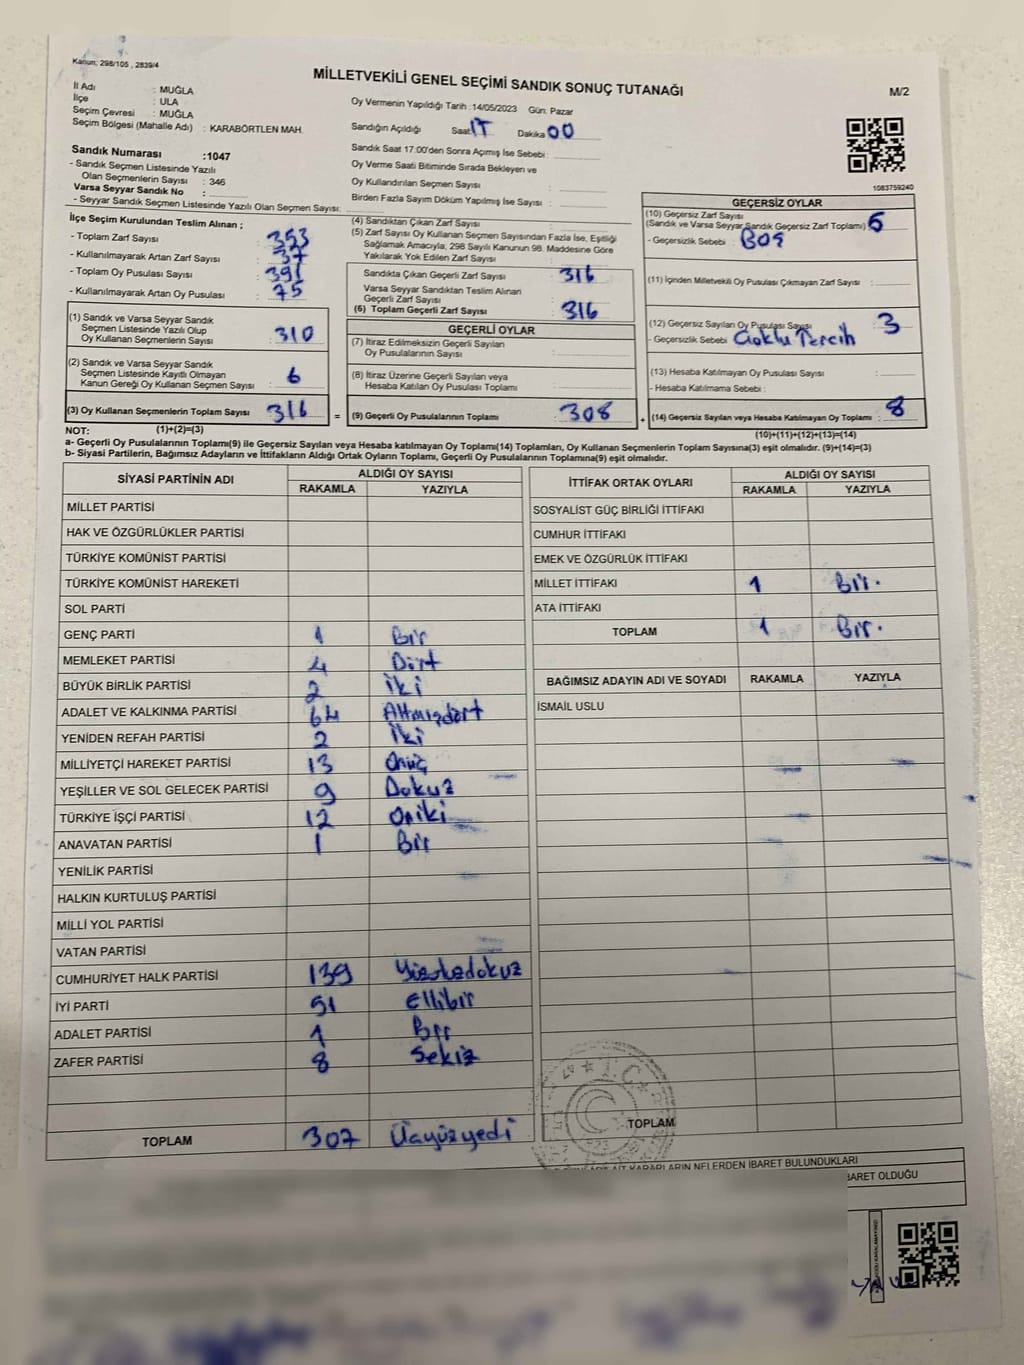 Kanun: 298/105 , 2839/4
MİLLETVEKİLİ GENEL SEÇİMİ SANDIK SONUÇ TUTANAĞI
M/2
İl Adı : MUĞLA
İlçe : ULA
Seçim Çevresi : MUĞLA
Seçim Bölgesi (Mahalle Adı) : KARABÖRTLEN MAH.
Oy Vermenin Yapıldığı Tarih :14/05/2023 Gün: Pazar
Sandığın Açıldığı Saat 17 Dakika 00
Sandık Saat 17:00'den Sonra Açımış İse Sebebi:
Sandık Numarası :1047
- Sandık Seçmen Listesinde Yazılı
Olan Seçmenlerin Sayısı : 346
Varsa Seyyar Sandık No :
- Seyyar Sandık Seçmen Listesinde Yazılı Olan Seçmen Sayısı:
Oy Verme Saati Bitiminde Sırada Bekleyen ve
Oy Kullandırılan Seçmen Sayısı :
Birden Fazla Sayım Döküm Yapılmış İse Sayısı :
1083759240
İlçe Seçim Kurulundan Teslim Alınan ;
- Toplam Zarf Sayısı : 353
- Kullanılmayarak Artan Zarf Sayısı : 37
- Toplam Oy Pusulası Sayısı : 391
- Kullanılmayarak Artan Oy Pusulası : 75
(1) Sandık ve Varsa Seyyar Sandık
Seçmen Listesinde Yazılı Olup
Oy Kullanan Seçmenlerin Sayısı : 310
(2) Sandık ve Varsa Seyyar Sandık
Seçmen Listesinde Kayıtlı Olmayan
Kanun Gereği Oy Kullanan Seçmen Sayısı : 6
(3) Oy Kullanan Seçmenlerin Toplam Sayısı : 316
(4) Sandıktan Çıkan Zarf Sayısı :
(5) Zarf Sayısı Oy Kullanan Seçmen Sayısından Fazla İse, Eşitliği
Sağlamak Amacıyla, 298 Sayılı Kanunun 98. Maddesine Göre
Yakılarak Yok Edilen Zarf Sayısı :
Sandıkta Çıkan Geçerli Zarf Sayısı : 316
Varsa Seyyar Sandıktan Teslim Alınan
Geçerli Zarf Sayısı :
(6) Toplam Geçerli Zarf Sayısı : 316
GEÇERLİ OYLAR
(7) İtiraz Edilmeksizin Geçerli Sayılan
Oy Pusulalarının Sayısı :
(8) İtiraz Üzerine Geçerli Sayılan veya
Hesaba Katılan Oy Pusulası Toplamı :
= (9) Geçerli Oy Pusulalarının Toplamı : 308
GEÇERSİZ OYLAR
(10) Geçersiz Zarf Sayısı
(Sandık ve Varsa Seyyar Sandık Geçersiz Zarf Toplamı) : 5
- Geçersizlik Sebebi : BOŞ
(11) İçinden Milletvekili Oy Pusulası Çıkmayan Zarf Sayısı :
(12) Geçersiz Sayılan Oy Pusulası Sayısı : 3
- Geçersizlik Sebebi : Çoklu Tercih
(13) Hesaba Katılmayan Oy Pusulası Sayısı :
- Hesaba Katılmama Sebebi :
+ (14) Geçersiz Sayılan veya Hesaba Katılmayan Oy Toplamı : 8
NOT: (1)+(2)=(3)
(10)+(11)+(12)+(13)=(14)
a- Geçerli Oy Pusulalarının Toplamı(9) ile Geçersiz Sayılan veya Hesaba katılmayan Oy Toplamı(14) Toplamları, Oy Kullanan Seçmenlerin Toplam Sayısına(3) eşit olmalıdır. (9)+(14)=(3)
b- Siyasi Partilerin, Bağımsız Adayların ve İttifakların Aldığı Ortak Oyların Toplamı, Geçerli Oy Pusulalarının Toplamına(9) eşit olmalıdır.
SİYASİ PARTİNİN ADI ALDIĞI OY SAYISI
RAKAMLA YAZIYLA
MİLLET PARTİSİ
HAK VE ÖZGÜRLÜKLER PARTİSİ
TÜRKİYE KOMÜNİST PARTİSİ
TÜRKİYE KOMÜNİST HAREKETİ
SOL PARTİ
GENÇ PARTİ 1 Bir
MEMLEKET PARTİSİ 4 Dört
BÜYÜK BİRLİK PARTİSİ 2 İki
ADALET VE KALKINMA PARTİSİ 64 Altmışdört
YENİDEN REFAH PARTİSİ 2 İki
MİLLİYETÇİ HAREKET PARTİSİ 13 Onüç
YEŞİLLER VE SOL GELECEK PARTİSİ 9 Dokuz
TÜRKİYE İŞÇİ PARTİSİ 12 Oniki
ANAVATAN PARTİSİ 1 Bir
YENİLİK PARTİSİ
HALKIN KURTULUŞ PARTİSİ
MİLLİ YOL PARTİSİ
VATAN PARTİSİ
CUMHURİYET HALK PARTİSİ 139 Yüzotuzdokuz
İYİ PARTİ 51 Ellibir
ADALET PARTİSİ 1 Bir
ZAFER PARTİSİ 8 Sekiz
TOPLAM 307 Üçyüzyedi
İTTİFAK ORTAK OYLARI ALDIĞI OY SAYISI
RAKAMLA YAZIYLA
SOSYALİST GÜÇ BİRLİĞİ İTTİFAKI
CUMHUR İTTİFAKI
EMEK VE ÖZGÜRLÜK İTTİFAKI
MİLLET İTTİFAKI 1 Bir.
ATA İTTİFAKI
TOPLAM 1 Bir.
BAĞIMSIZ ADAYIN ADI VE SOYADI RAKAMLA YAZIYLA
İSMAİL USLU
TOPLAM
T.C
KARARLARIN NELERDEN İBARET BULUNDUKLARI
İBARET OLDUĞU